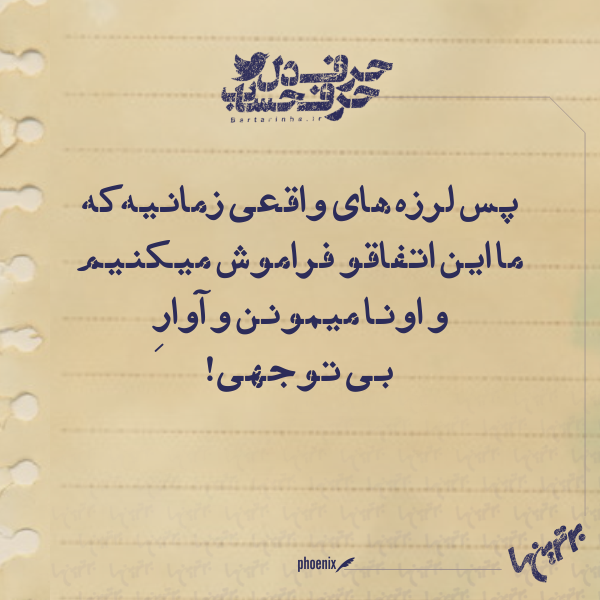 حرف دل
حرف حساب
Bartarinha.ir
پس لرزه های واقعی زمانیه که
ما این اتفاقو فراموش میکنیم
و اونا میمونن و آوارِ
بی توجهی!
phoenix
برترین ها